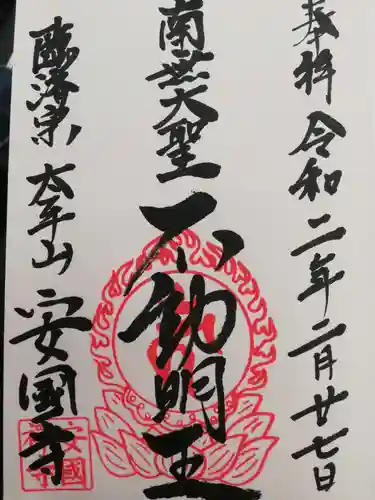 奉拝 令和二年二月廿七日
南無大聖
不動明王
臨済宗 太平山 安國寺
安國